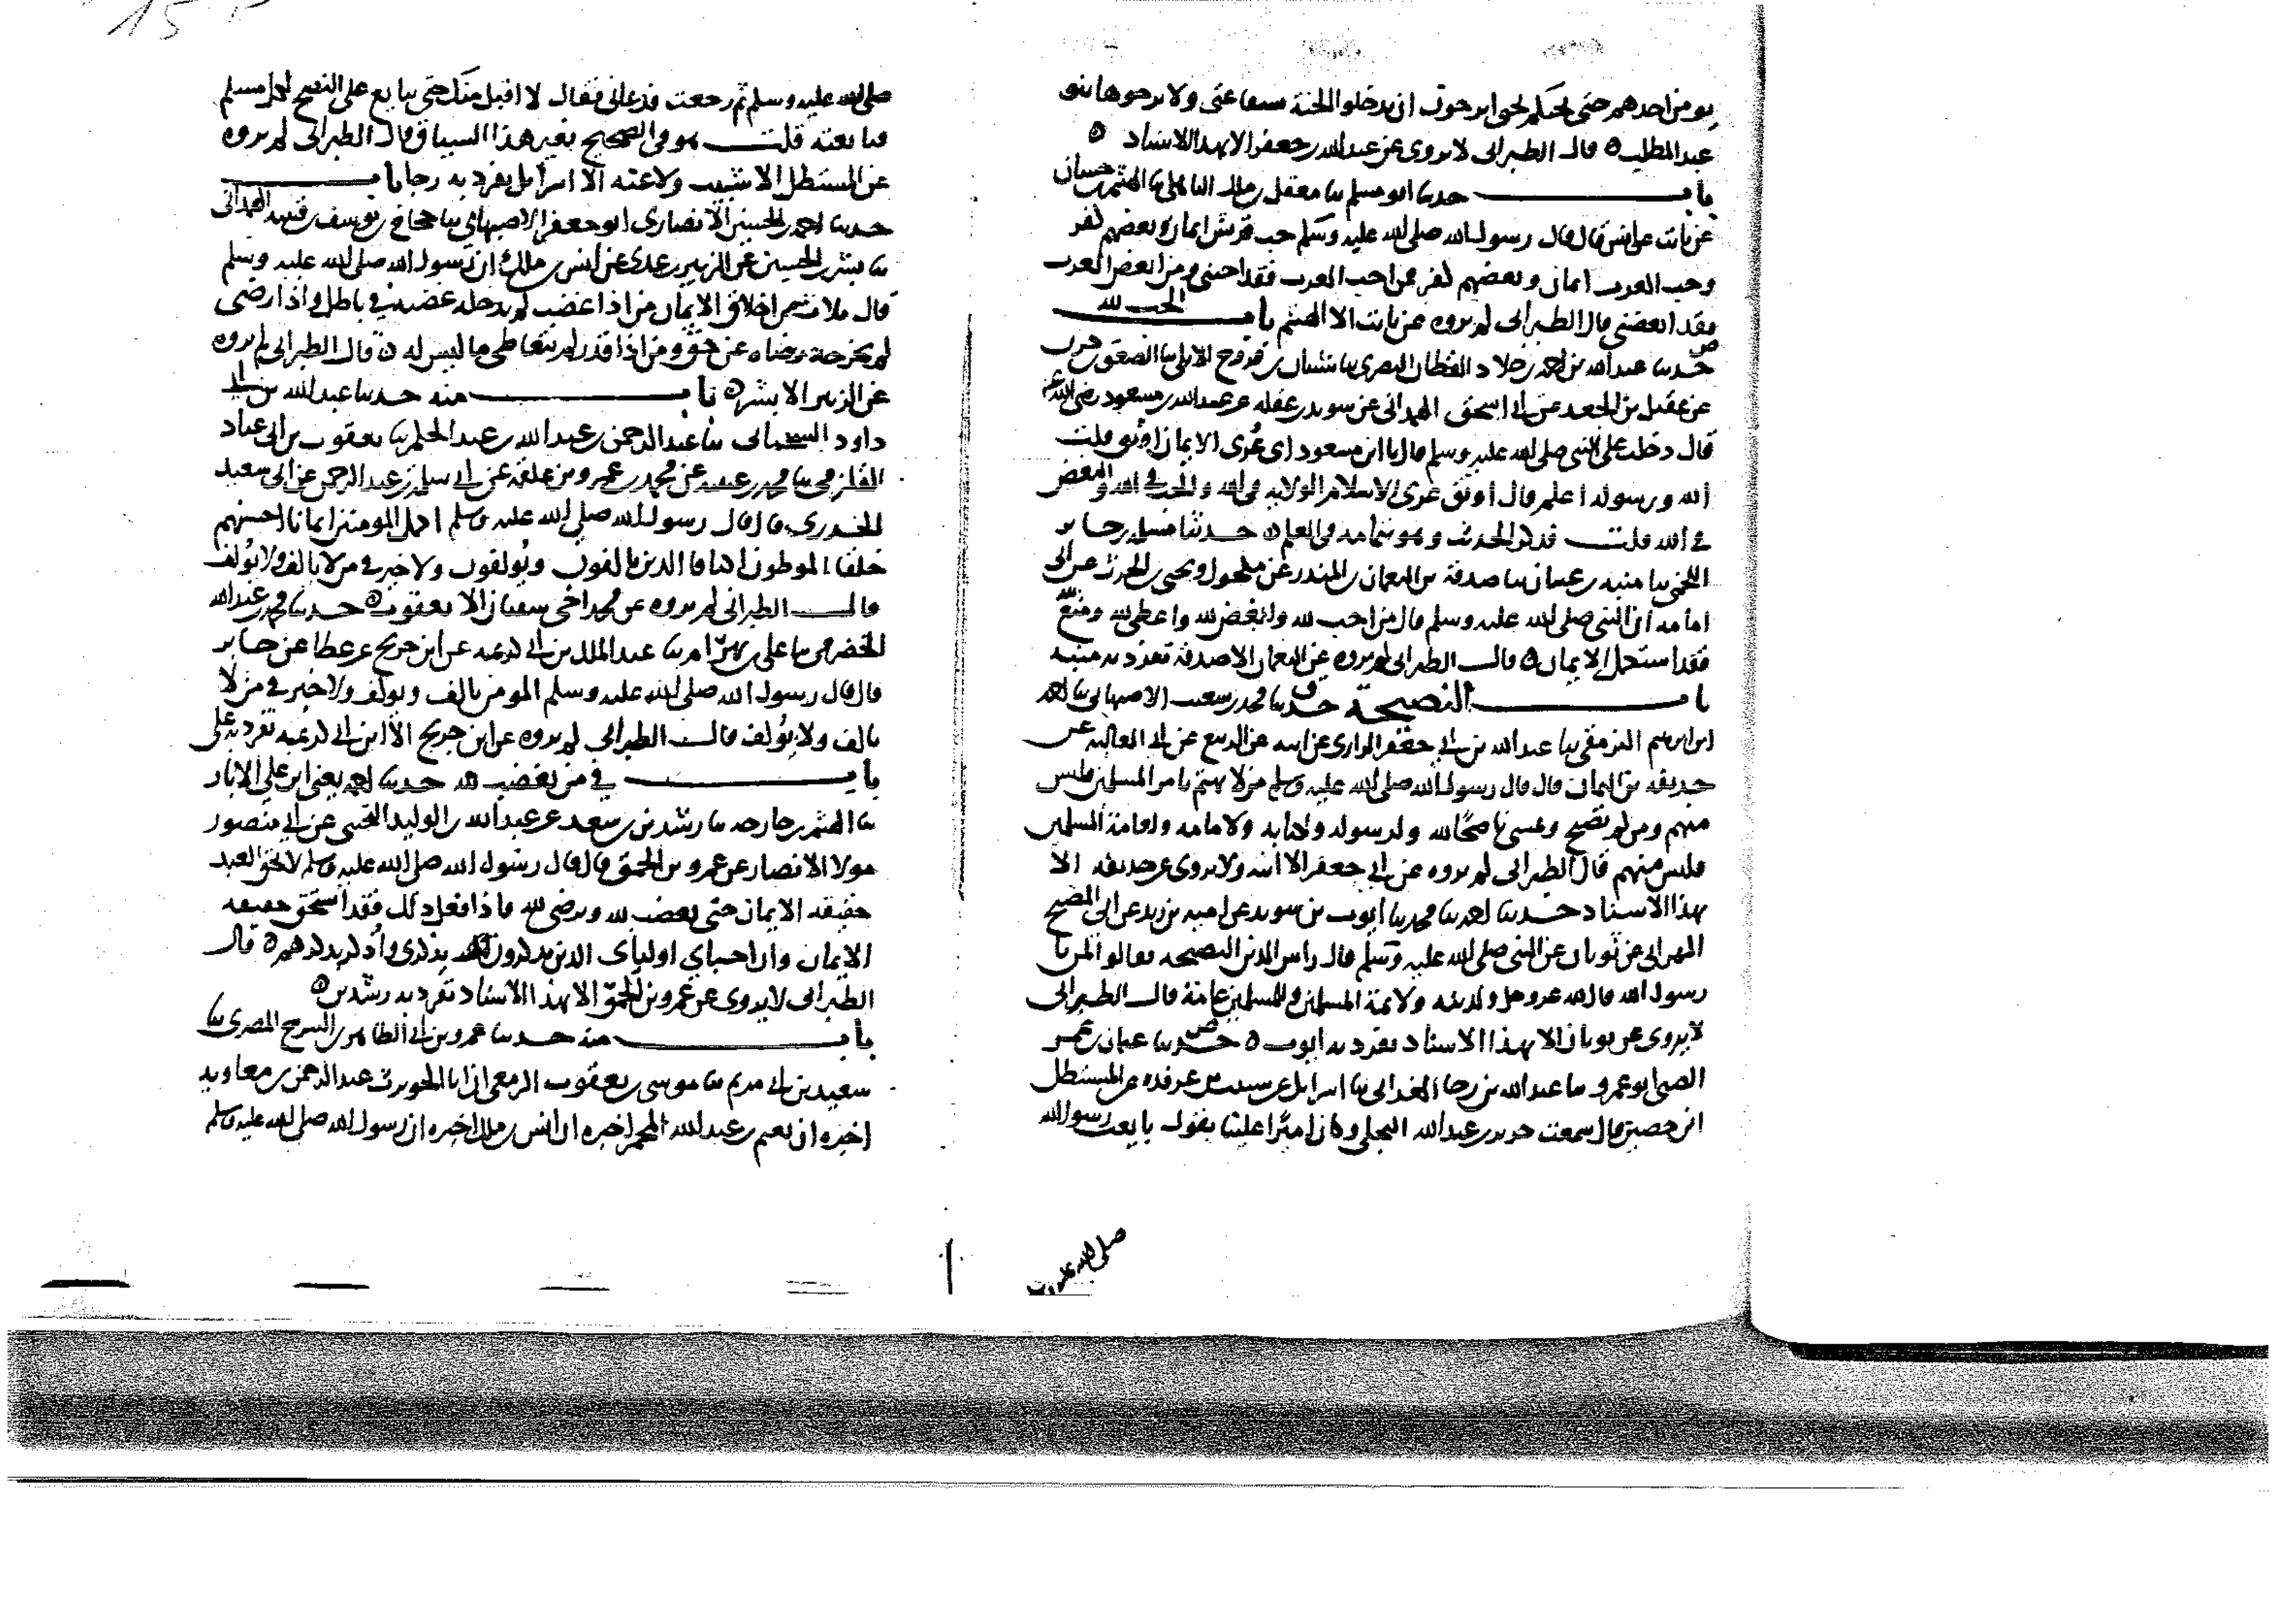 يومن احدهم حتى يحبكم لحبي ايرجون ان يدخلوا الجنة بشفاعتي ولا يرجوها بنو
عبد المطلب ٥ قال الطبراني لا يروى عن عبد الله بن جعفر الا بهذا الاسناد ٥
باب حدثنا ابو مسلم ثنا معقل بن ملك الباهلي ثنا الهيثم بن جماز
عن ثابت عن انس قال قال رسول الله صلى الله عليه وسلم حب قريش ايمان وبغضهم كفر
وحب العرب ايمان وبغضهم كفر فمن احب العرب فقد احبني ومن ابغض العرب
فقد ابغضني قال الطبراني لم يروه عن ثابت الا الهيثم باب الحب لله
حدثنا عبد الله بن احمد بن خلاد القطان البصري ثنا شيبان بن فروخ الابلي ثنا الصعق بن حزن
عن عقيل بن الجعد عن ابي اسحق الهمداني عن سويد بن غفله عن عبد الله بن مسعود رضي الله عنه
قال دخلت على النبي صلى الله عليه وسلم فقال يا ابن مسعود اي عُرى الايمان اوثق قلت
الله ورسوله اعلم قال اوثق عرى الاسلام الولايه في الله والحب في الله والبغض
في الله قلت فذكر الحديث وهو بتمامه في العلم ٥ حدثنا مسلمه بن جابر
اللخمي ثنا منبه بن عثمان ثنا صدقة عن النعمان بن المنذر عن مكحول ويحيى بن الحرث عن ابي
امامه ان النبي صلى الله عليه وسلم قال من احب لله وابغض لله واعطى لله ومنع لله
فقد استكمل الايمان ٥ قال الطبراني لم يروه عن النعمان الا صدقة تفرد به منبه
باب النصيحة حدثنا محمد بن شعيب الاصبهاني ثنا احمد
بن ابراهيم الزمعي ثنا عبد الله بن ابي جعفر الرازي عن ابيه عن الربيع عن ابي العاليه عن
حذيفه بن اليمان قال قال رسول الله صلى الله عليه وسلم من لا يهتم بامر المسلمين فليس
منهم ومن لم يصبح ويمسي ناصحًا لله ولرسوله ولكتابه ولامامه ولعامة المسلمين
فليس منهم قال الطبراني لم يروه عن ابي جعفر الا ابنه ولا يروى عن حذيفه الا
بهذا الاسناد حدثنا احمد ثنا محمد ثنا ايوب بن سويد عن اميه بن يزيد عن ابي المصبح
المهراني عن ثوبان عن النبي صلى الله عليه وسلم قال راس الدين النصيحه فقالوا لمن يا
رسول الله قال لله عز وجل ولدينه ولايمة المسلمين وللمسلمين عامة قال الطبراني
لا يروى عن ثوبان الا بهذا الاسناد تفرد به ايوب ٥ حدثنا عثمان بن عمر
الضبي ابو عمرو ثنا عبد الله بن رجا الغداني ثنا اسرايل عن شبيب بن غرقده عن المستظل
ابن حصين قال سمعت جرير بن عبد الله البجلي وكان اميرًا علينا يقول بايعت رسول الله
صلى الله عليه وسلم
صلى الله عليه وسلم ثم رجعت فدعاني فقال لا اقبل منك حتى تبايع على النصح لكل مسلم
فبايعته قلت هو في الصحيح بغير هذا السياق قال الطبراني لم يروه
عن المستظل الا شبيب ولا عنه الا اسرايل تفرد به رجا باب
حدثنا احمد بن الحسين الانصاري ابو جعفر الاصبهاني ثنا حجاج بن يوسف بن قتيبه الهمداني
ثنا بشر بن الحسين عن الزبير بن عدي عن انس بن ملك ان رسول الله صلى الله عليه وسلم
قال ثلاث من اخلاق الايمان من اذا غضب لم يدخله غضبه في باطل واذا رضى
لم يخرجه رضاه عن حق ومن اذا قدر لم يتعاطى ما ليس له ٥ قال الطبراني لم يروه
عن الزبير الا بشر ٥ باب منه حدثنا عبد الله بن ابي
داود السجستاني ثنا عبد الرحمن بن عبد الله بن عبد الحكم ثنا يعقوب بن ابي عباد
القلزمي ثنا محمد بن عيينه عن محمد بن عمرو بن علقمه عن ابي سلمة بن عبد الرحمن عن ابي سعيد
الخدري قال قال رسول الله صلى الله عليه وسلم اكمل المومنين ايمانا احسنهم
خلقا الموطون اكنافا الذين يالفون ويُولفون ولا خير في من لا يالف ولا يُولف
قال الطبراني لم يروه عن محمد اخي سفيان الا يعقوب ٥ حدثنا محمد بن عبد الله
الحضرمي ثنا علي بن بهرام ثنا عبد الملك بن ابي كريمه عن ابن جريج عن عطا عن جابر
قال قال رسول الله صلى الله عليه وسلم المومن يالف ويولف ولا خير في من لا
يالف ولا يُولف قال الطبراني لم يروه عن ابن جريج الا ابن ابي كريمه تفرد به علي
باب في من يغضب لله حدثنا احمد يعني ابن علي الابار
ثنا الهيثم بن خارجه ثنا رشدين بن سعد عن عبد الله بن الوليد التجيبي عن ابي منصور
مولا الانصار عن عمرو بن الحمق قال قال رسول الله صلى الله عليه وسلم لا يحق العبد
حقيقه الايمان حتى يغضب لله ويرضى لله فاذا فعل ذلك فقد استحق حقيقه
الايمان وان احباي اولياى الذين يذكرون بذكرى واُذكر بذكرهم ٥ قال
الطبراني لا يروى عن عمرو بن الحمق الا بهذا الاسناد تفرد به رشدين ٥
باب منه حدثنا عمرو بن ابي الطاهر بن السرح المصري ثنا
سعيد بن ابي مريم ثنا موسى بن يعقوب الزمعي ان ابا الحويرث عبد الرحمن بن معاويه
اخبره ان نعيم بن عبد الله المجمر اخبره ان انس بن ملك اخبره ان رسول الله صلى الله عليه وسلم